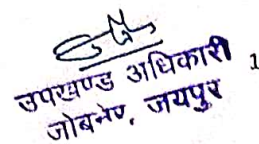 उपखण्ड अधिकारी
जोबनेर, जयपुर
1